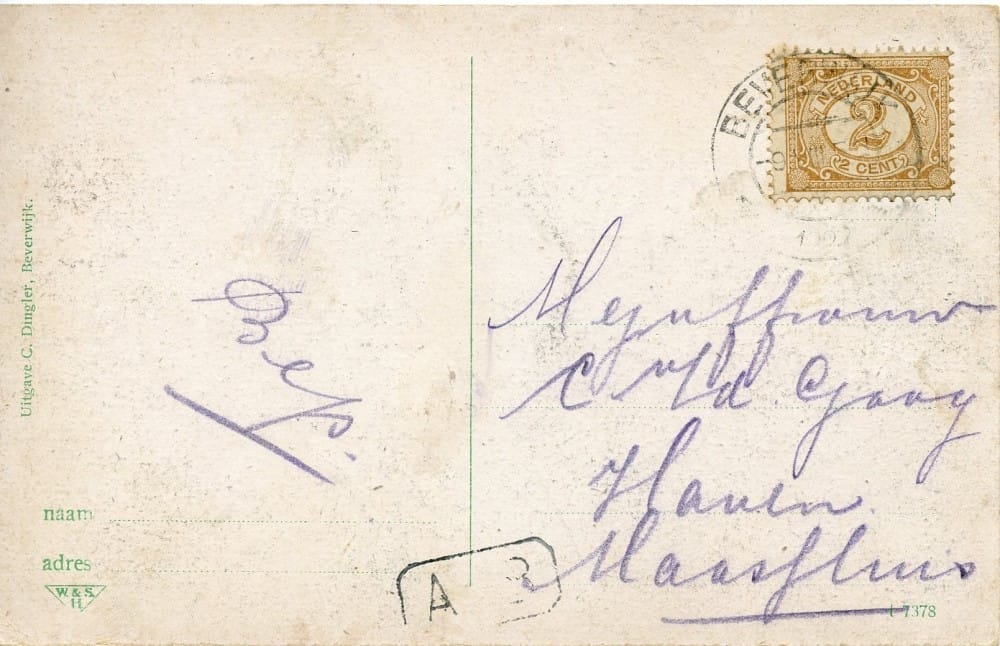 Uitgave C. Dingler, Beverwijk.
Bep.
naam
adres
W. & S.
H.
BEVERWIJK
NEDERLAND
2
2 CENT
Mejuffrouw
C v/d Gaag
Haven.
Maassluis
A 3
t 7378